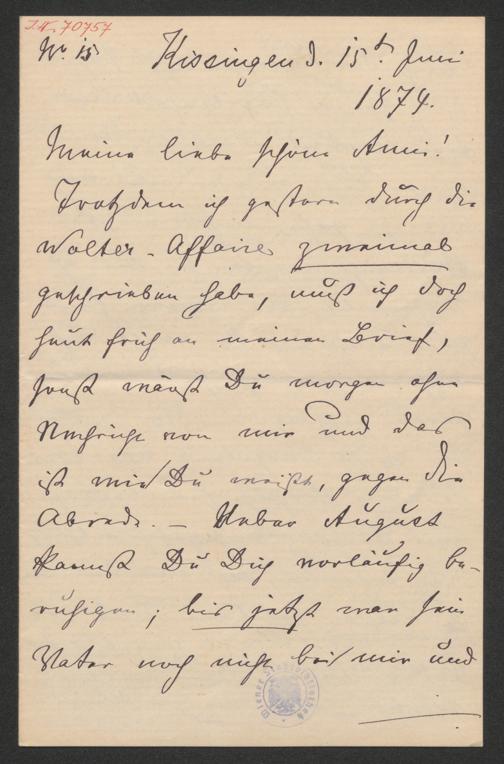 I.N. 70757
Nr. 15
Kissingen d. 15t Juni
1874.
Meine liebe schöne Anni!
Trotzdem ich gestern durch die
Wolter-Affaire zweimal
geschrieben habe, muß ich doch
heut früh an meinen Brief,
sonst wärst Du morgen ohne
Nachricht von mir und das
ist wie Du weißt, gegen die
Abrede. – Ueber August
kannst Du Dich vorläufig be-
ruhigen; bis jetzt war sein
Vater noch nicht bei mir und
Wiener Stadtbibliothek